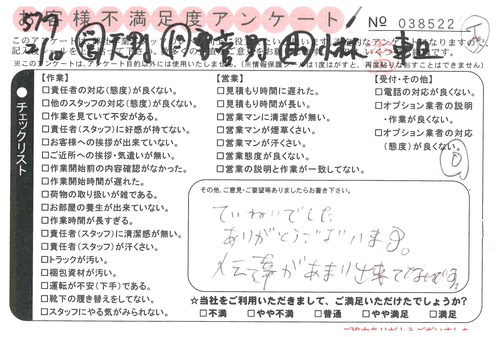 お客様不満足度アンケート
No 038522
※このアンケートは、アンケート目的以外には使用しません。(※情報保護シールは1度はがすと、再度貼りなおすことはできません)
チェックリスト
【作業】
□責任者の対応(態度)が良くない。
□他のスタッフの対応(態度)が良くない。
□作業を見ていて不安がある。
□責任者(スタッフ)に好感が持てない。
□お客様への挨拶が出来ていない。
□ご近所への挨拶・気遣いが無い。
□作業開始前の内容確認がなかった。
□作業開始時間が遅れた。
□荷物の取り扱いが雑である。
□お部屋の養生が出来ていない。
□作業時間が長すぎる。
□責任者(スタッフ)に清潔感が無い。
□責任者(スタッフ)が汗くさい。
□トラックが汚い。
□梱包資材が汚い。
□運転が不安(下手)である。
□靴下の履き替えをしてない。
□スタッフにやる気がみられない。
【営業】
□見積もり時間に遅れた。
□見積もり時間が長い。
□営業マンに清潔感が無い。
□営業マンが煙草くさい。
□営業マンが汗くさい。
□営業態度が良くない。
□営業の説明と作業が一致してない。
【受付・その他】
□電話の対応が良くない。
□オプション業者の説明
・作業が良くない。
□オプション業者の対応
(態度)が良くない。
その他、ご意見・ご要望等ありましたらお書き下さい。
ていねいでした
ありがとうございます。
☆当社をご利用いただきまして、ご満足いただけたでしょうか?
□不満 □やや不満 □普通 □やや満足 □満足